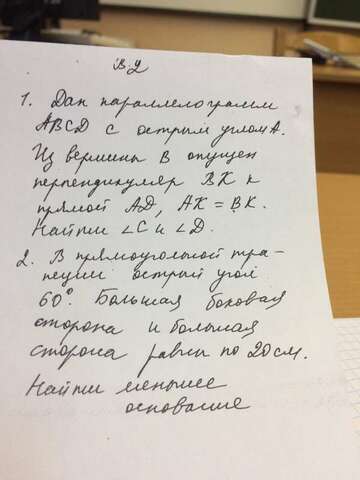 В-2
1. Дан параллелограмм
ABCD с острым углом A.
Из вершины B опущен
перпендикуляр BK к
прямой AD, AK = BK.
Найти ∠C и ∠D.
2. В прямоугольной тра-
пеции острый угол
60°. Большая боковая
сторона и большая
сторона равны по 20 см.
Найти меньшее
основание